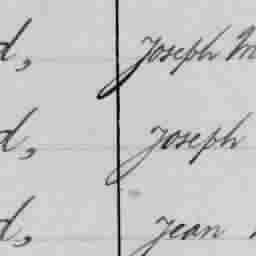 d, Joseph M
d, Joseph
d, Jean